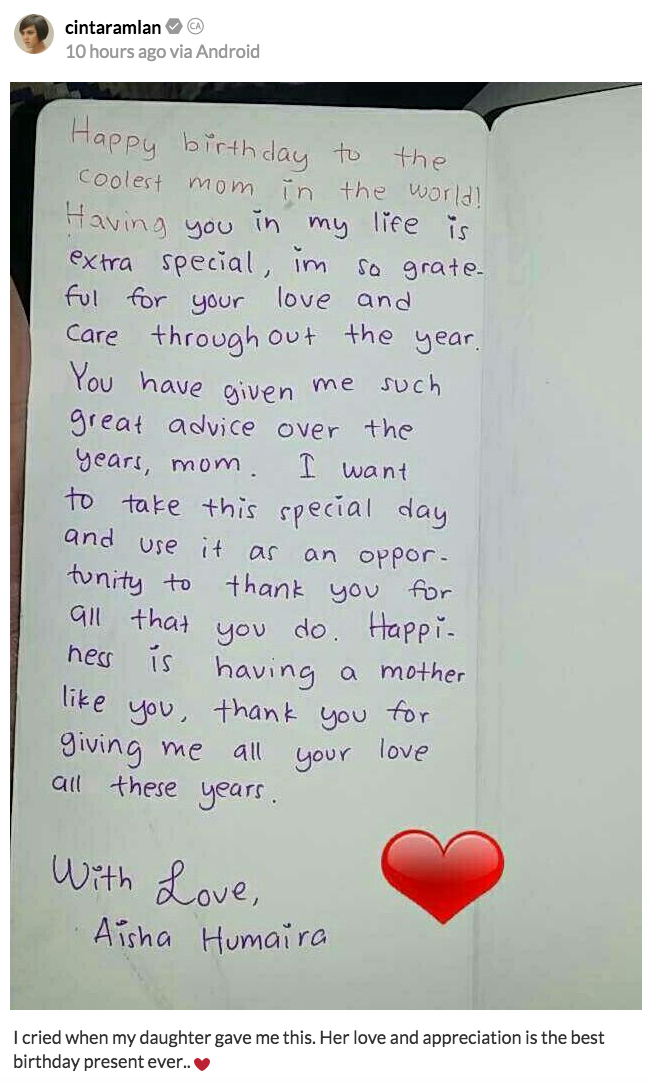 cintaramlan CA
10 hours ago via Android
Happy birthday to the
coolest mom in the world!
Having you in my life is
extra special, im so grate-
ful for your love and
care throughout the year.
You have given me such
great advice over the
years, mom. I want
to take this special day
and use it as an oppor-
tunity to thank you for
all that you do. Happi-
ness is having a mother
like you, thank you for
giving me all your love
all these years.
With Love,
Aisha Humaira
I cried when my daughter gave me this. Her love and appreciation is the best
birthday present ever..